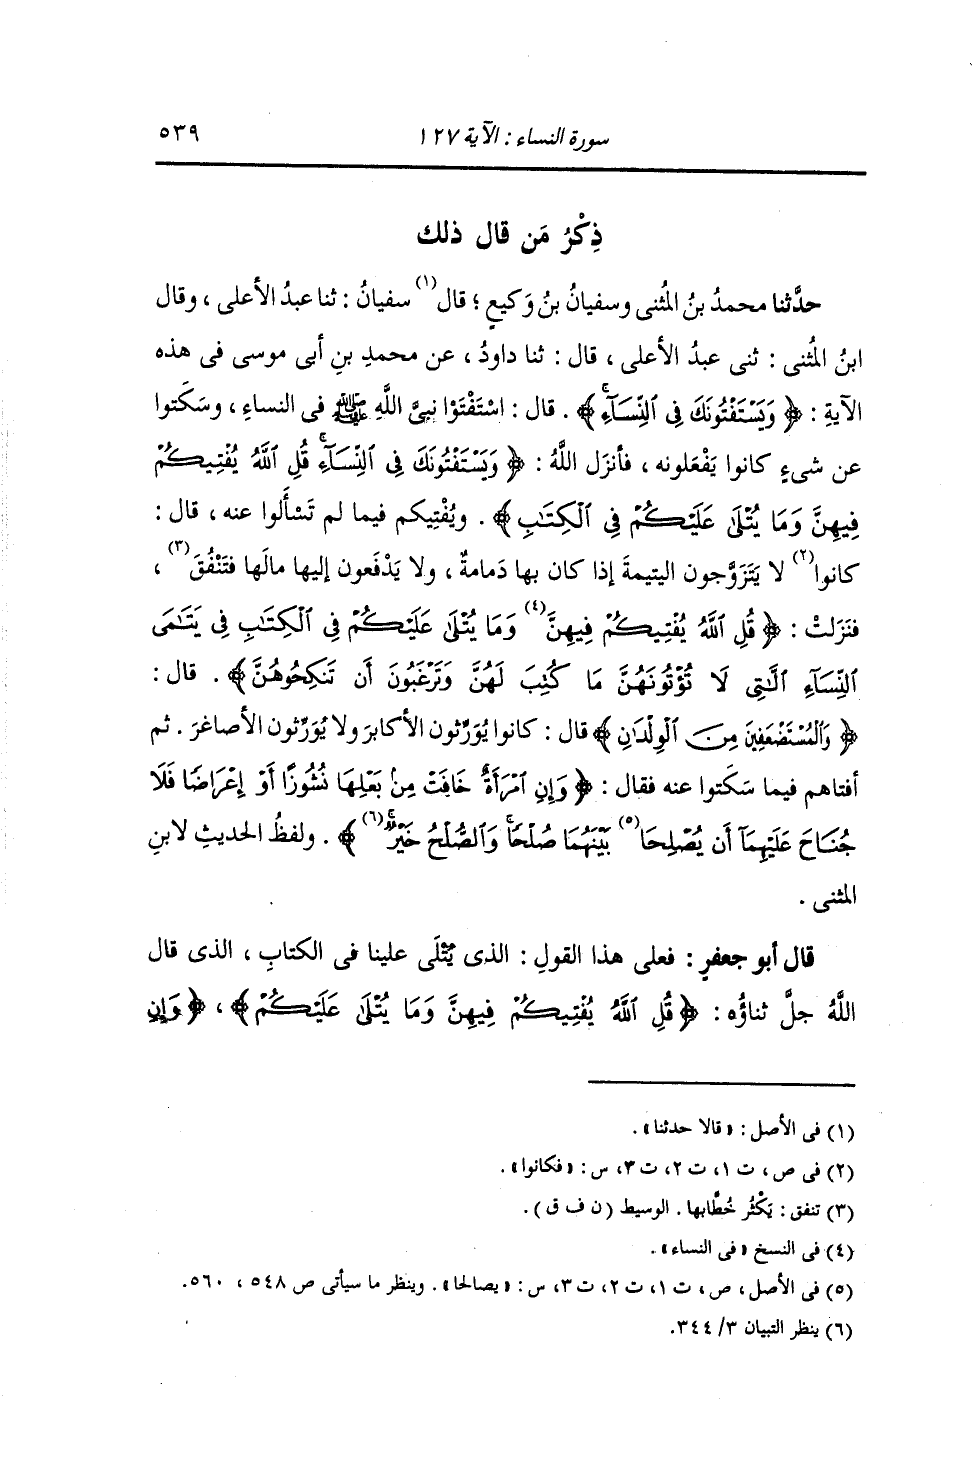 سورة النساء : الآية ١٢٧ ٥٣٩
ذِكْرُ مَن قال ذلك
حدَّثنا محمدُ بنُ المُثنى وسفيانُ بنُ وَكيعٍ ؛ قال(١) سفيانُ : ثنا عبدُ الأعلى ، وقال
ابنُ المُثنى : ثنى عبدُ الأعلى ، قال : ثنا داودُ ، عن محمدِ بنِ أبى موسى فى هذه
الآيةِ : ﴿ وَيَسْتَفْتُونَكَ فِى ٱلنِّسَآءِۖ ﴾ . قال : اسْتَفْتَوْا نبىَّ اللَّهِ ﷺ فى النساءِ ، وسَكَتوا
عن شىءٍ كانوا يَفْعَلونه ، فأنزَل اللَّهُ : ﴿ وَيَسْتَفْتُونَكَ فِى ٱلنِّسَآءِۖ قُلِ ٱللَّهُ يُفْتِيكُمْ
فِيهِنَّ وَمَا يُتْلَىٰ عَلَيْكُمْ فِى ٱلْكِتَٰبِ ﴾ . ويُفْتِيكم فيما لم تَسْألوا عنه ، قال :
كانوا(٢) لا يَتَزَوَّجون اليتيمةَ إذا كان بها دَمامةٌ ، ولا يَدْفَعون إليها مالَها فتَنْفُقَ(٣) ،
فنَزَلتْ : ﴿ قُلِ ٱللَّهُ يُفْتِيكُمْ فِيهِنَّ(٤) وَمَا يُتْلَىٰ عَلَيْكُمْ فِى ٱلْكِتَٰبِ فِى يَتَٰمَى
ٱلنِّسَآءِ ٱلَّٰتِى لَا تُؤْتُونَهُنَّ مَا كُتِبَ لَهُنَّ وَتَرْغَبُونَ أَن تَنكِحُوهُنَّ ﴾ . قال :
﴿ وَٱلْمُسْتَضْعَفِينَ مِنَ ٱلْوِلْدَٰنِ ﴾ قال : كانوا يُوَرِّثون الأكابرَ ولا يُوَرِّثون الأصاغرَ . ثم
أفتاهم فيما سَكَتوا عنه فقال : ﴿ وَإِنِ ٱمْرَأَةٌ خَافَتْ مِنۢ بَعْلِهَا نُشُوزًا أَوْ إِعْرَاضًا فَلَا
جُنَاحَ عَلَيْهِمَآ أَن يُصْلِحَا(٥) بَيْنَهُمَا صُلْحًاۚ وَٱلصُّلْحُ خَيْرٌۗ(٦) ﴾ . ولفظُ الحديثِ لابنِ
المثنى .
قال أبو جعفرٍ : فعلى هذا القولِ : الذى يُتْلَى علينا فى الكتابِ ، الذى قال
اللَّهُ جلَّ ثناؤُه : ﴿ قُلِ ٱللَّهُ يُفْتِيكُمْ فِيهِنَّ وَمَا يُتْلَىٰ عَلَيْكُمْ ﴾ ، ﴿ وَإِنِ
(١) فى الأصل : «قالا حدثنا» .
(٢) فى ص، ت ١، ت ٢، ت ٣، س : «فكانوا» .
(٣) تنفق : يَكْثُر خُطَّابها . الوسيط (ن ف ق) .
(٤) فى النسخ «فى النساء» .
(٥) فى الأصل ، ص، ت ١، ت ٢، ت ٣، س : «يصالحا» . وينظر ما سيأتى ص ٥٤٨ ، ٥٦٠.
(٦) ينظر التبيان ٣/ ٣٤٤.